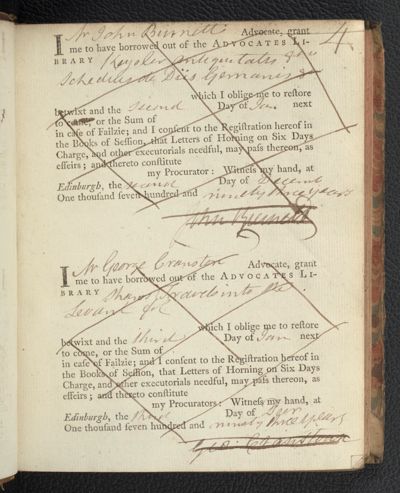 4
I Mr John Burnett Advocate, grant
me to have borrowed out of the ADVOCATES LI-
BRARY Keysler Antiquitates &
Schedius de Diis Germanis &
which I oblige me to reſtore
betwixt and the second Day of Jan. next
to come, or the Sum of
in caſe of Failzie; and I conſent to the Regiſtration hereof in
the Books of Seſſion, that Letters of Horning on Six Days
Charge, and other executorials needful, may paſs thereon, as
effeirs; and thereto conſtitute
my Procurator: Witneſs my hand, at
Edinburgh, the second Day of Decemr
One thouſand ſeven hundred and ninety three years
John Burnett
I Mr George Cranstoun Advocate, grant
me to have borrowed out of the ADVOCATES LI-
BRARY Shaws Travels into the
Levant &c
which I oblige me to reſtore
betwixt and the third Day of Jan next
to come, or the Sum of
in caſe of Failzie; and I conſent to the Regiſtration hereof in
the Books of Seſſion, that Letters of Horning on Six Days
Charge, and other executorials needful, may paſs thereon, as
effeirs; and thereto conſtitute
my Procurators: Witneſs my hand, at
Edinburgh, the third Day of Decr
One thouſand ſeven hundred and ninety three years
Geo: Cranstoun